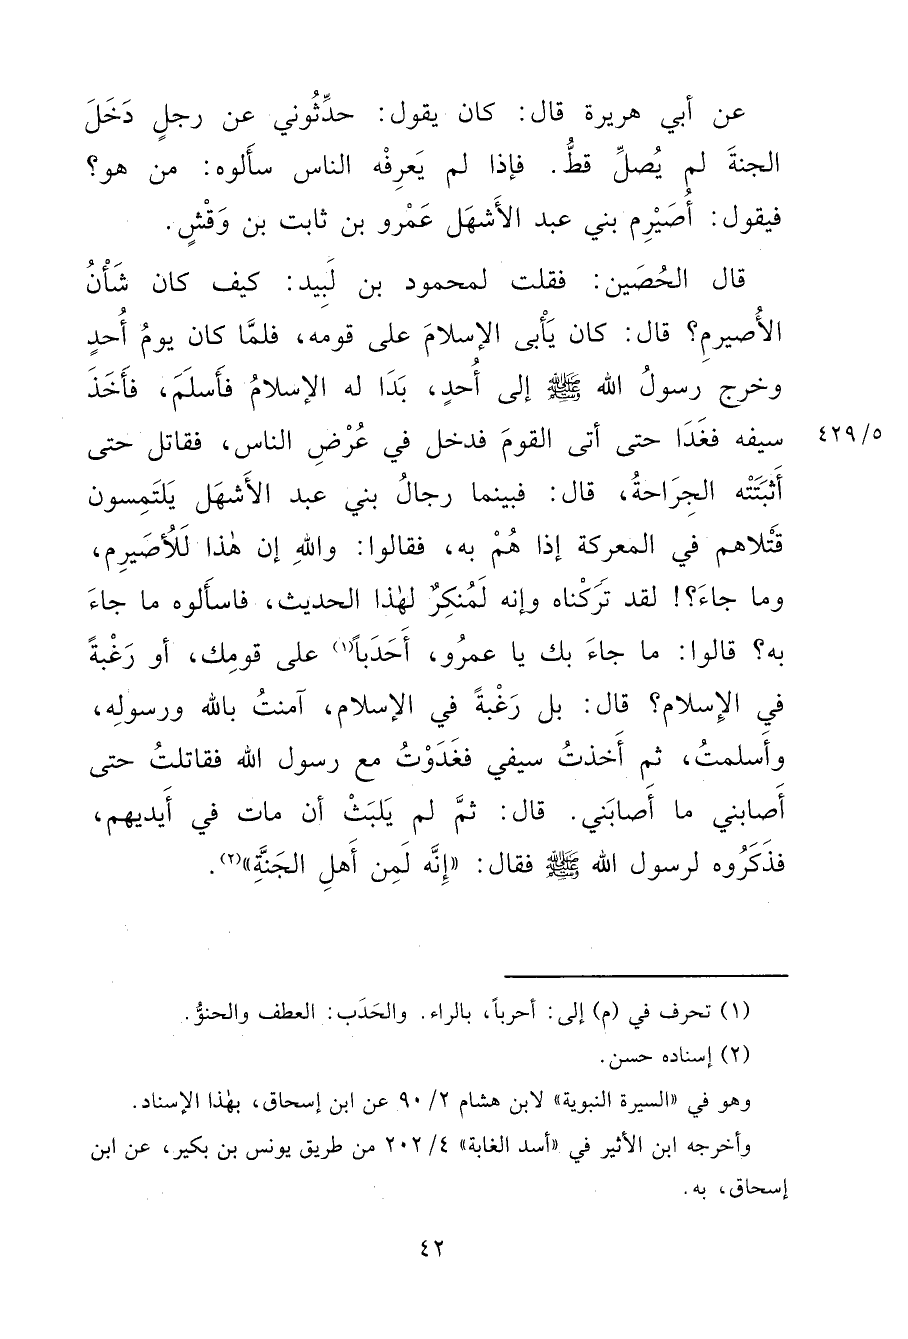 عن أبي هريرة قال: كان يقول: حدِّثُوني عن رجلٍ دَخَلَ
الجنةَ لم يُصلِّ قطُّ. فإذا لم يَعرِفْه الناس سألوه: من هو؟
فيقول: أُصَيْرِم بني عبد الأَشهَل عَمْرو بن ثابت بن وَقْشٍ.
قال الحُصَين: فقلت لمحمود بن لَبِيد: كيف كان شَأْنُ
الأُصيرمِ؟ قال: كان يَأْبى الإسلامَ على قومه، فلمَّا كان يومُ أُحدٍ
وخرج رسولُ الله ﷺ إلى أُحدٍ، بَدَا له الإسلامُ فأَسلَمَ، فأَخَذَ
سيفه فغَدَا حتى أتى القومَ فدخل في عُرْضِ الناس، فقاتل حتى
٤٢٩/٥
أَثبَتَتْه الجِرَاحةُ، قال: فبينما رجالُ بني عبد الأَشهَل يَلتَمِسون
قَتْلاهم في المعركة إذا هُمْ به، فقالوا: واللهِ إن هٰذا لَلأُصَيرِم،
وما جاءَ؟! لقد تَرَكْناه وإنه لَمُنكِرٌ لهٰذا الحديث، فاسألوه ما جاءَ
به؟ قالوا: ما جاءَ بك يا عمرُو، أَحَدَباً(١) على قومِك، أو رَغْبةً
في الإِسلام؟ قال: بل رَغْبةً في الإسلام، آمنتُ بالله ورسولِه،
وأَسلمتُ، ثم أَخذتُ سيفي فغَدَوْتُ مع رسول الله فقاتلتُ حتى
أَصابني ما أَصابَني. قال: ثمَّ لم يَلبَثْ أن مات في أَيديهم،
فذَكَرُوه لرسول الله ﷺ فقال: «إِنَّه لَمِن أَهلِ الجَنَّةِ»(٢).
(١) تحرف في (م) إلى: أحرباً، بالراء. والحَدَب: العطف والحنوُّ.
(٢) إسناده حسن.
وهو في «السيرة النبوية» لابن هشام ٩٠/٢ عن ابن إسحاق، بهٰذا الإسناد.
وأخرجه ابن الأثير في «أسد الغابة» ٢٠٢/٤ من طريق يونس بن بكير، عن ابن
إسحاق، به.
٤٢